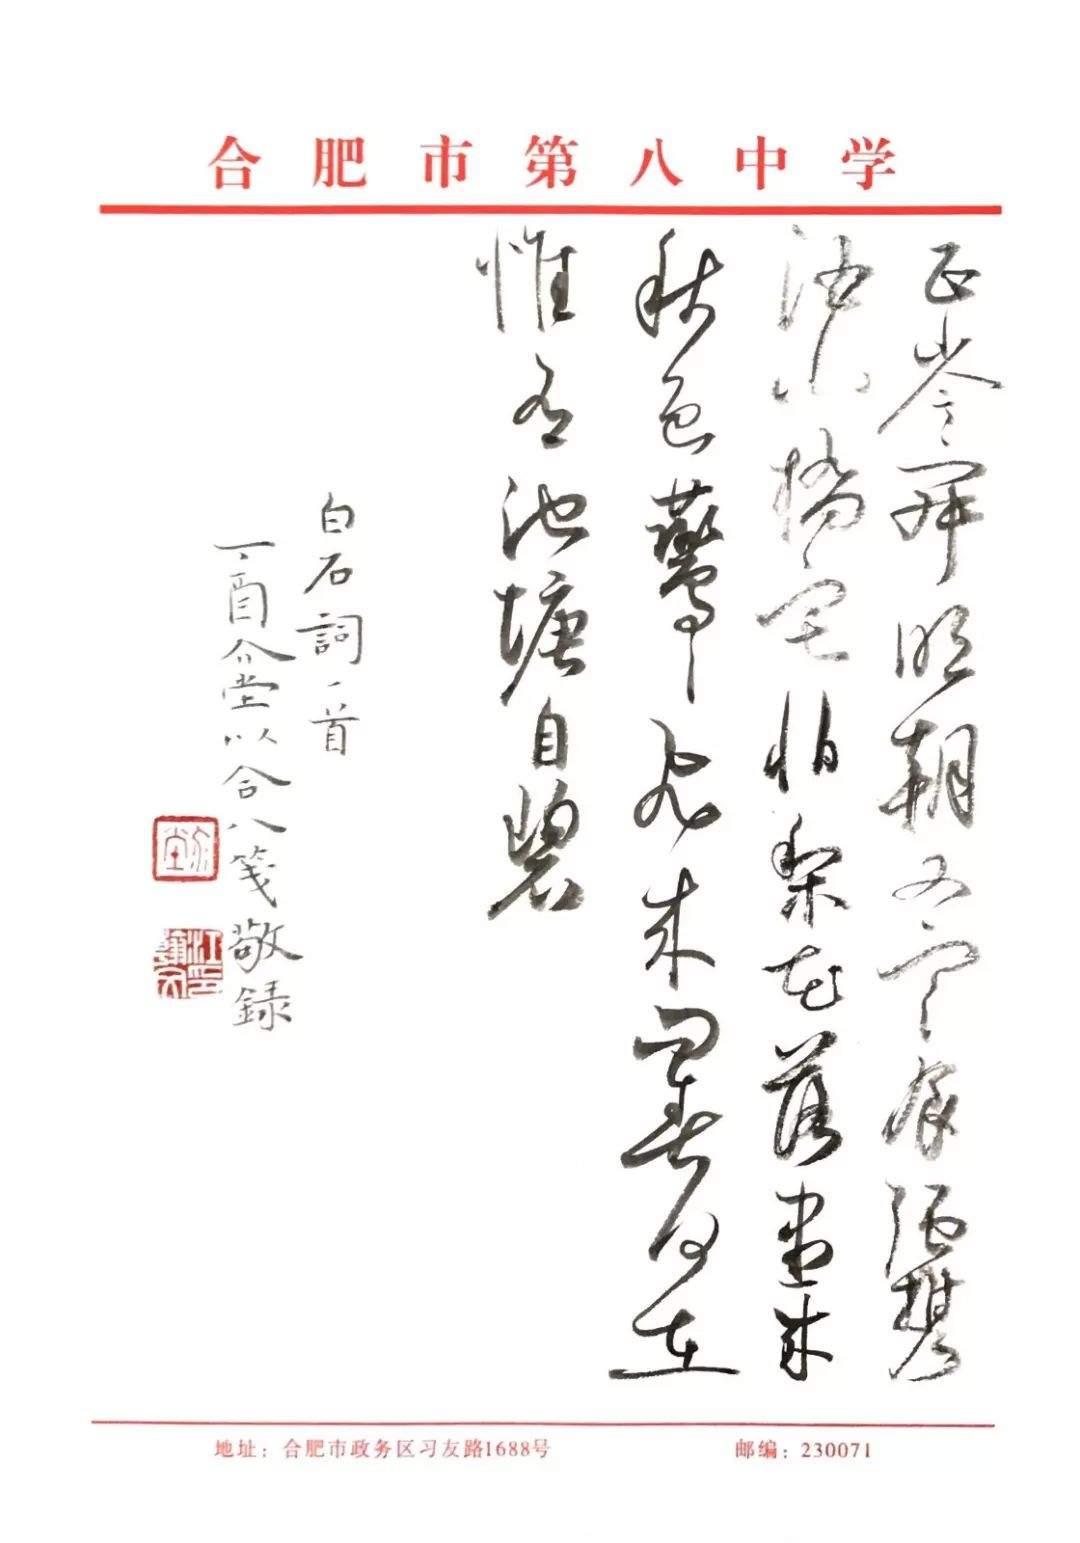 合肥市第八中学
正岑寂明朝又寒食强攜
酒小橋宅怕梨花落盡成
秋色燕燕飛來問春何在
惟有池塘自碧
白石詞一首
丁酉尒堂以合八箋敬録
地址：合肥市政务区习友路1688号
邮编：230071